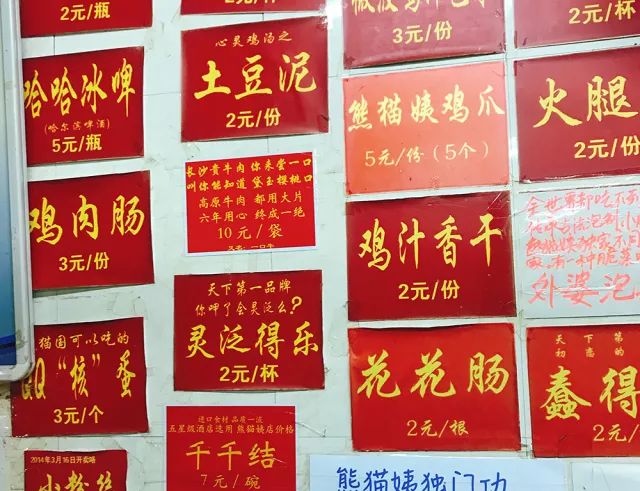 2元/瓶
哈哈冰啤
(哈尔滨啤酒)
5元/瓶
鸡肉肠
3元/份
猫国可以吃的
QQ“核”蛋
3元/个
2014年3月16日开卖咯
小粉丝
心灵鸡汤之
土豆泥
2元/份
长沙贵牛肉 你来尝一口
叫你能知道 黛玉樱桃口
高原牛肉 都用大片
六年用心 终成一绝
10元/袋
天下第一品牌
你呷了会灵泛么?
灵泛得乐
2元/杯
进口食材 品质一流
五星级酒店选用 熊猫姨店价格
千千结
7元/碗
3元/份
熊猫姨鸡爪
5元/份(5个)
鸡汁香干
2元/份
花花肠
2元/根
熊猫姨独门功
2元/杯
火腿
2元/份
外婆泡
天下第
初恋的
蠢得
2元/